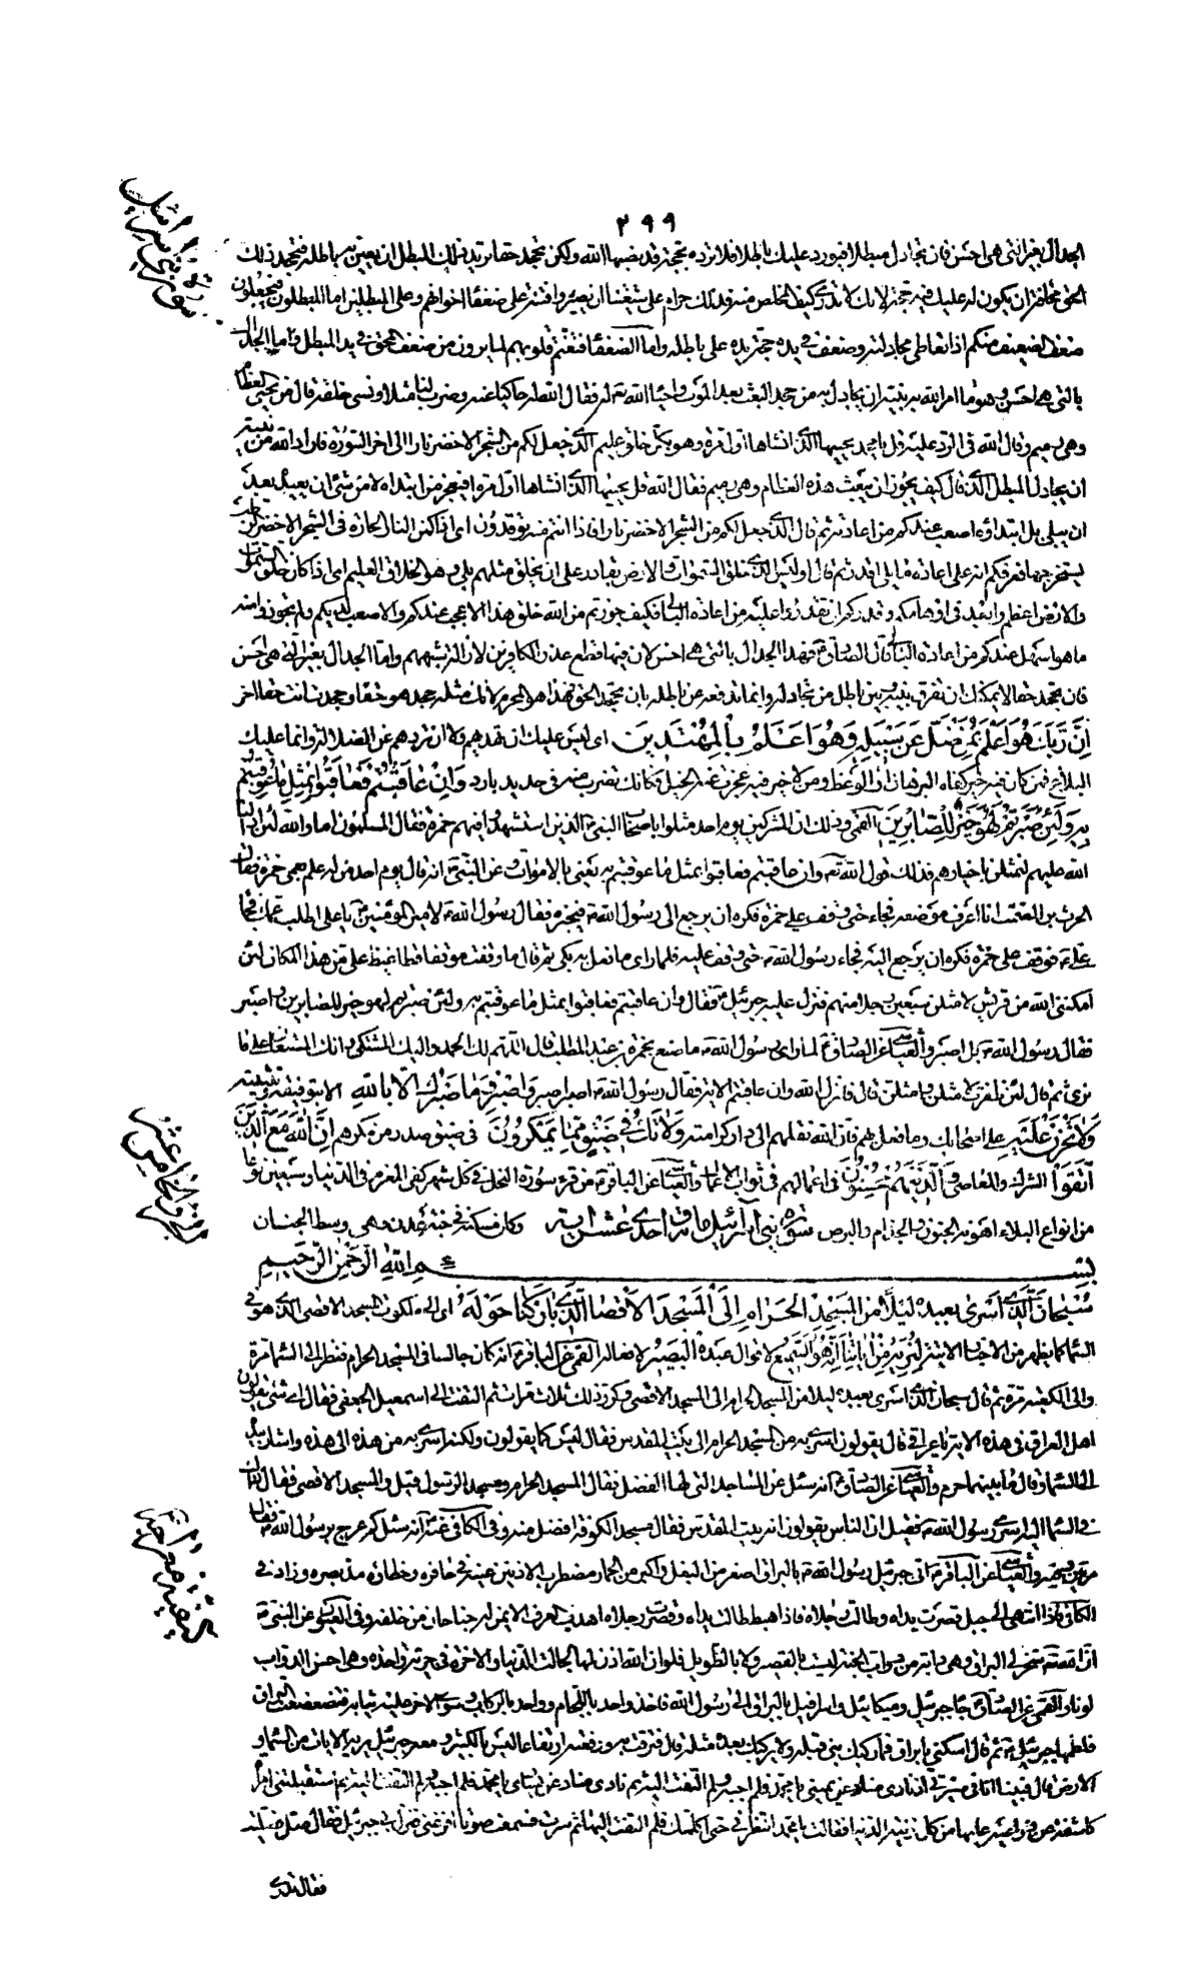 ٢٩٩
الجدال بغير التي هي احسن فان تجادل مبطلا فيورد عليك باطلا فلا ترده بحجة قد نصبها الله ولكن تجحد حقا يريد ذلك المبطل ان يعين به باطله فتجحد ذلك
الحق مخافة ان يكون له عليك فيه حجة لانك لا تدري كيف المخلص منه فذلك حرام على شيعتنا ان يصيروا فتنة على ضعفاء اخوانهم وعلى المبطلين اما المبطلون فيجعلون
ضعف الضعيف منكم اذا تعاطى مجادلته وضعف في يده حجة له على باطله واما الضعفاء فتغتم قلوبهم لما يرون من ضعف المحق في يد المبطل واما الجدال
بالتي هي احسن وهو ما امر الله به نبيه ان يجادل به من جحد البعث بعد الموت واحياء الله تعالى له فقال الله له حاكيا عنه وضرب لنا مثلا ونسي خلقه قال من يحيي العظام
وهي رميم وقال الله في الرد عليه قل يا محمد يحييها الذي انشاها اول مرة وهو بكل خلق عليم الذي جعل لكم من الشجر الاخضر نارا الى اخر السورة فاراد الله من نبيه
ان يجادل المبطل الذي قال كيف يجوز ان يبعث هذه العظام وهي رميم فقال الله قل يحييها الذي انشاها اول مرة افيعجز من ابتداه لا من شيء ان يعيده بعد
ان يبلى بل ابتداؤه اصعب عندكم من اعادته ثم قال الذي جعل لكم من الشجر الاخضر نارا فاذا انتم منه توقدون اي اذا كمن النار الحارة في الشجر الاخضر الرطب
يستخرجها فعرفكم انه على اعادة ما بلى اقدر ثم قال اوليس الذي خلق السموات والارض بقادر على ان يخلق مثلهم بلى وهو الخلاق العليم اي اذا كان خلق السموات
والارض اعظم وابعد في اوهامكم وقدركم ان تقدروا عليه من اعادة البالي فكيف جوزتم من الله خلق هذا الاعجب عندكم والاصعب لديكم ولم تجوزوا منه
ما هو اسهل عندكم من اعادة البالي قال الصادق فهذا الجدال بالتي هي احسن لان فيها قطع عذر الكافرين وازالة شبههم واما الجدال بغير التي هي احسن
فان تجحد حقا لا يمكنك ان تفرق بينه وبين باطل من تجادله وانما تدفعه عن باطله بان تجحد الحق فهذا هو المحرم لانك مثله جحد هو حقا وجحدت انت حقا اخر
اِنَّ رَبَّكَ هُوَ اَعْلَمُ بِمَنْ ضَلَّ عَنْ سَبِيلِهِ وَهُوَ اَعْلَمُ بِالْمُهْتَدِينَ اي ليس عليك ان تهديهم ولا ان تردهم عن الضلالة وانما عليك
البلاغ فمن كان فيه خير كفاه البرهان او الوعظ ومن لا خير فيه عجزت عنه الحيل فكانك تضرب منه في حديد بارد وَاِنْ عَاقَبْتُمْ فَعَاقِبُوا بِمِثْلِ مَا عُوقِبْتُمْ
بِهِ وَلَئِنْ صَبَرْتُمْ لَهُوَ خَيْرٌ لِلصَّابِرِينَ القمي وذلك ان المشركين يوم احد مثلوا باصحاب النبي الذين استشهدوا فيهم حمزة فقال المسلمون اما والله لئن ادالنا
الله عليهم لنمثلن باخيارهم فذلك قول الله تعالى وان عاقبتم فعاقبوا بمثل ما عوقبتم به يعني بالاموات وعن النبي انه قال يوم احد من له علم بعمي حمزة فقال
الحرث بن الصمت انا اعرف موضعه فجاء حتى وقف على حمزة فكره ان يرجع الى رسول الله فيخبره فقال رسول الله لامير المؤمنين يا علي اطلب عمك فجاء
علي فوقف على حمزة فكره ان يرجع اليه فجاء رسول الله حتى وقف عليه فلما راى ما فعل به بكى ثم قال ما وقفت موقفا قط اغيظ علي من هذا المكان لئن
امكنني الله من قريش لامثلن بسبعين رجلا منهم فنزل عليه جبرئيل فقال وان عاقبتم فعاقبوا بمثل ما عوقبتم به ولئن صبرتم لهو خير للصابرين واصبر
فقال رسول الله بل اصبر والعياشي عن الصادق لما راى رسول الله ما صنع بحمزة بن عبد المطلب قال اللهم لك الحمد واليك المشتكى وانك المستعان على ما
نرى ثم قال لئن ظفرت لامثلن ولامثلن قال فانزل الله وان عاقبتم الاية فقال رسول الله اصبر اصبر وَاصْبِرْ وَمَا صَبْرُكَ اِلَّا بِاللهِ الا بتوفيقه وتثبيته
وَلَا تَحْزَنْ عَلَيْهِمْ على اصحابك وما فعل بهم فان الله نقلهم الى دار كرامته وَلَا تَكُ فِي ضَيْقٍ مِمَّا يَمْكُرُونَ في ضيق صدر من مكرهم اِنَّ اللهَ مَعَ الَّذِينَ
اتَّقَوْا الشرك والمعاصي وَالَّذِينَ هُمْ مُحْسِنُونَ في اعمالهم في ثواب الاعمال والعياشي عن الباقر من قرء سورة النحل في كل شهر كفي المغرم في الدنيا وسبعين نوعا
من انواع البلاء اهونه الجنون والجذام والبرص سورة بني اسرائيل مائة واحدى عشر اية وكان مسكنه في جنة عدن وهي وسط الجنان
بسم الله الرحمن الرحيم
سُبْحَانَ الَّذِي اَسْرَى بِعَبْدِهِ لَيْلًا مِنَ الْمَسْجِدِ الْحَرَامِ اِلَى الْمَسْجِدِ الْاَقْصَا الَّذِي بَارَكْنَا حَوْلَهُ اي الى ملكوت المسجد الاقصى الذي هو في
السماء كما يظهر من الاخبار الاتية لِنُرِيَهُ مِنْ اٰيَاتِنَا اِنَّهُ هُوَ السَّمِيعُ لاقوال عبده الْبَصِيرُ لافعاله القمي عن الباقر انه كان جالسا في المسجد الحرام فنظر الى السماء مرة
والى الكعبة مرة ثم قال سبحان الذي اسرى بعبده ليلا من المسجد الحرام الى المسجد الاقصى وكرر ذلك ثلاث مرات ثم التفت الى اسمعيل الجعفي فقال اي شيء يقولون
اهل العراق في هذه الاية يا عراقي قال يقولون اسرى به من المسجد الحرام الى بيت المقدس فقال ليس كما يقولون ولكنه اسرى به من هذه الى هذه واشار بيده
الى السماء وقال ما بينهما حرم والعياشي عن الصادق انه سئل عن المساجد التي لها الفضل فقال المسجد الحرام ومسجد الرسول قيل والمسجد الاقصى فقال ذاك
في السماء اليه اسرى رسول الله فقيل ان الناس يقولون انه بيت المقدس فقال مسجد الكوفة افضل منه وفي الكافي عنه انه سئل كم عرج برسول الله فقال
مرتين والعياشي عن الباقر اتى جبرئيل رسول الله بالبراق اصغر من البغل واكبر من الحمار مضطرب الاذنين عينيه في حافره وخطاه مد بصره وزاد في
الكافي فاذا انتهى الى جبل قصرت يداه وطالت رجلاه فاذا هبط طالت يداه وقصرت رجلاه اهدب العرف الايمن له جناحان من خلفه وفي العيون عن النبي
ان الله سخر لي البراق وهي دابة من دواب الجنة ليست بالقصير ولا بالطويل فلو ان الله اذن لها لجالت الدنيا والاخرة في جرية واحدة وهي احسن الدواب
لونا والقمي عن الصادق جاء جبرئيل وميكائيل واسرافيل بالبراق الى رسول الله فاخذ واحد باللجام وواحد بالركاب وسوى الاخر عليه ثيابه فتضعضعت البراق
فلطمها جبرئيل ثم قال اسكني يا براق فما ركبك نبي قبله ولا يركبك بعده مثله قال فترقت به ورفعته ارتفاعا ليس بالكثير ومعه جبرئيل يريه الايات من السماء و
الارض قال فبينا انا في مسيري اذ نادى مناد عن يميني يا محمد فلم اجبه ولم التفت اليه ثم نادى مناد عن يساري يا محمد فلم اجبه ولم التفت اليه ثم استقبلتني امراة
كاشفة عن ذراعيها عليها من كل زينة الدنيا فقالت يا محمد انتظرني حتى اكلمك فلم التفت اليها ثم سرت فسمعت صوتا افزعني فنزل بي جبرئيل فقال صل فصليت
فقال تدري
سورة بني اسرائيل
الجزو الخامس عشر